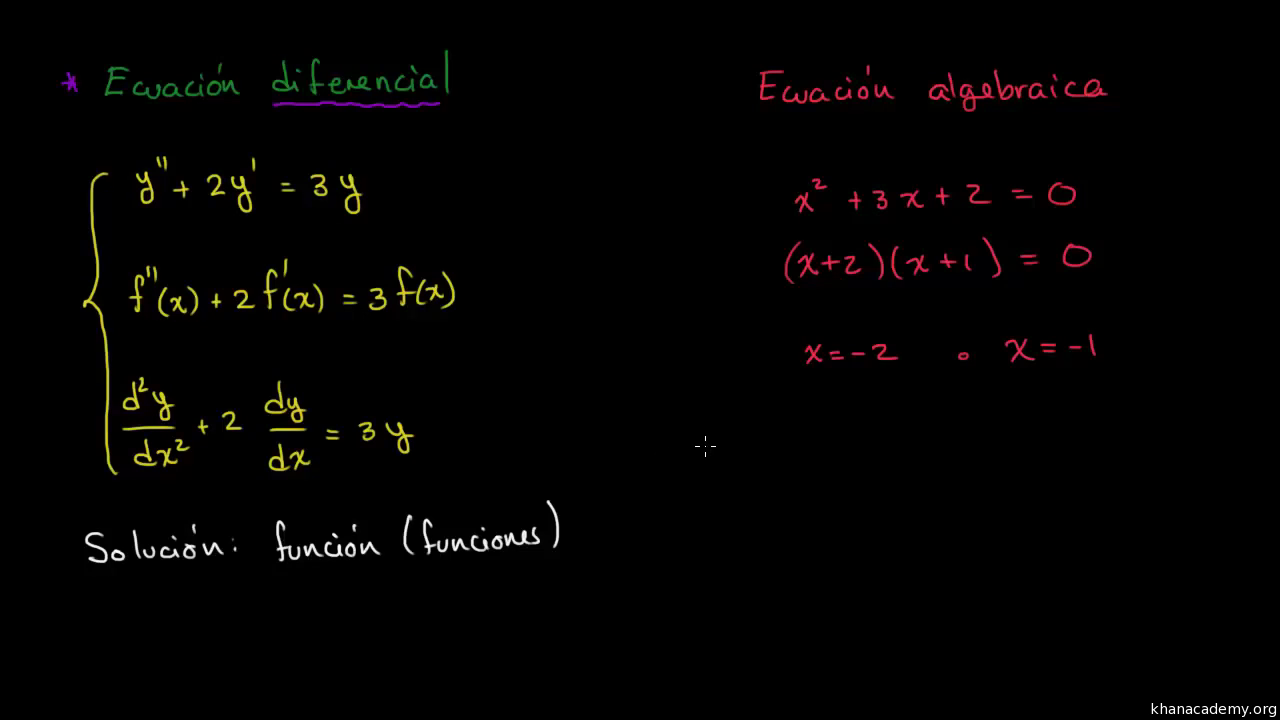 * Ecuación diferencial
y'' + 2y' = 3y
f''(x) + 2f'(x) = 3f(x)
d²y/dx² + 2 dy/dx = 3y
Solución: función (funciones)
Ecuación algebraica
x² + 3x + 2 = 0
(x+2)(x+1) = 0
x = -2 o x = -1
khanacademy.org